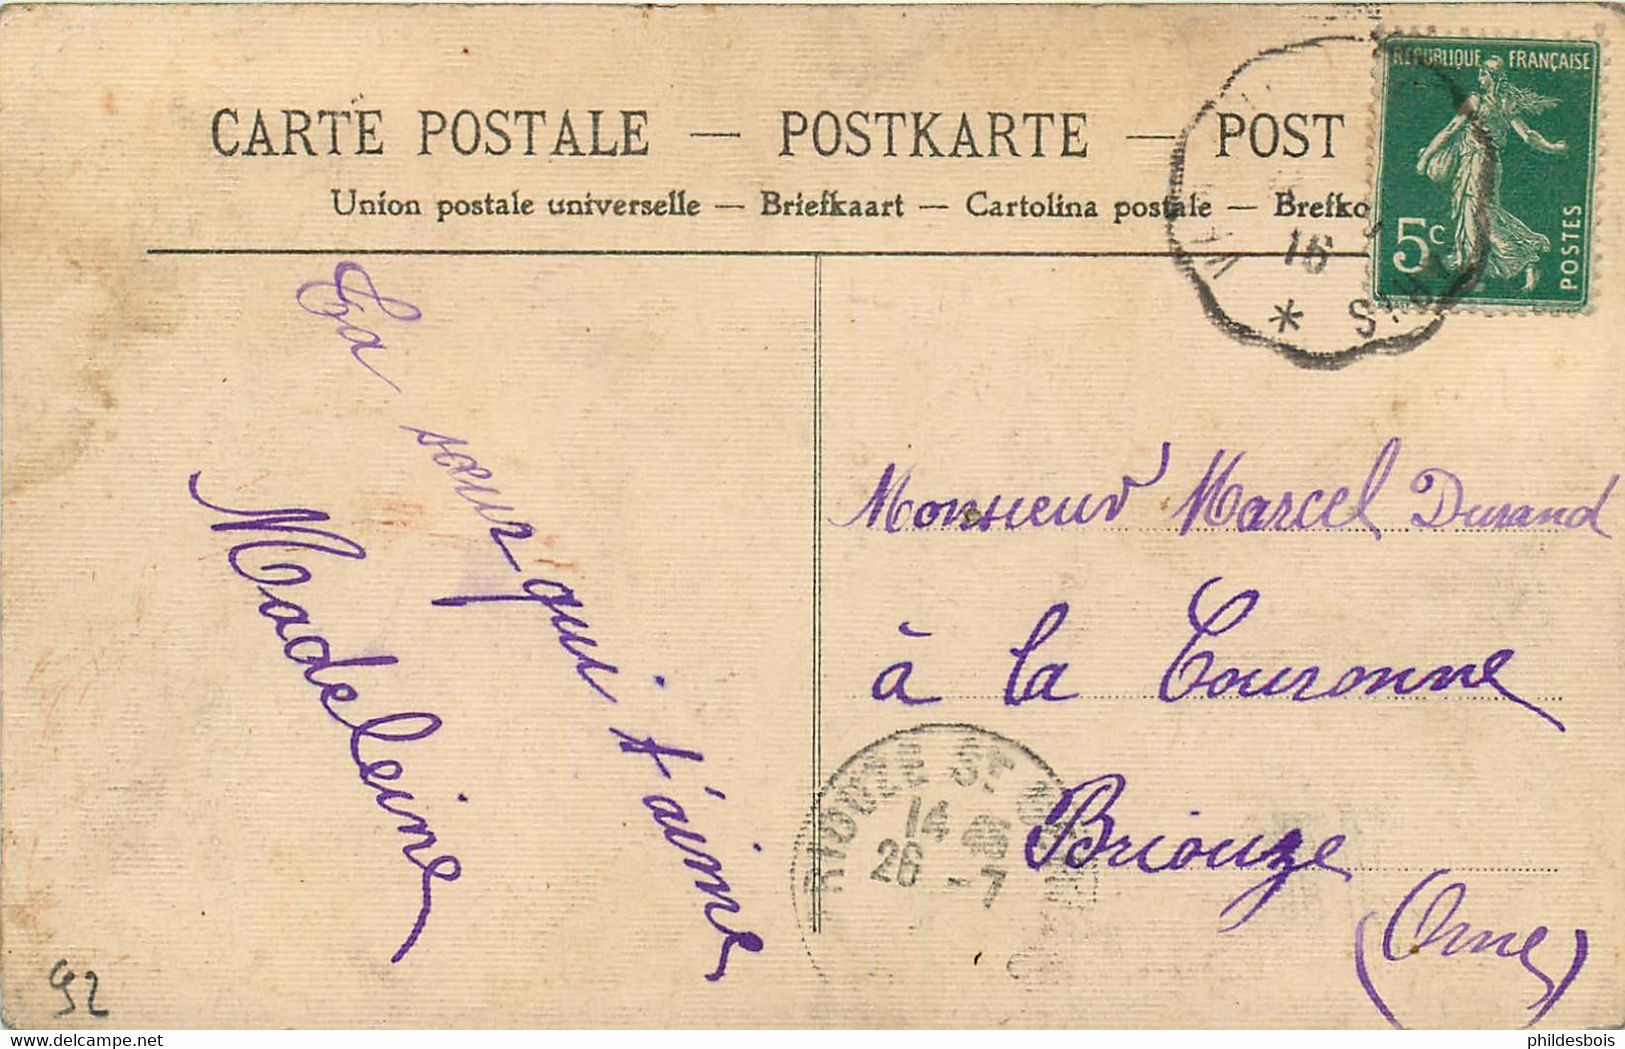 CARTE POSTALE — POSTKARTE — POST
Union postale universelle — Briefkaart — Cartolina postale — Brefko
REPUBLIQUE FRANÇAISE
5c
POSTES
16
Ta sœur qui t'aime
Madeleine
Monsieur Marcel Durand
à la Couronne
Briouze
(Orne)
BRIOUZE ST
14
26 -7
92
www.delcampe.net
phildesbois